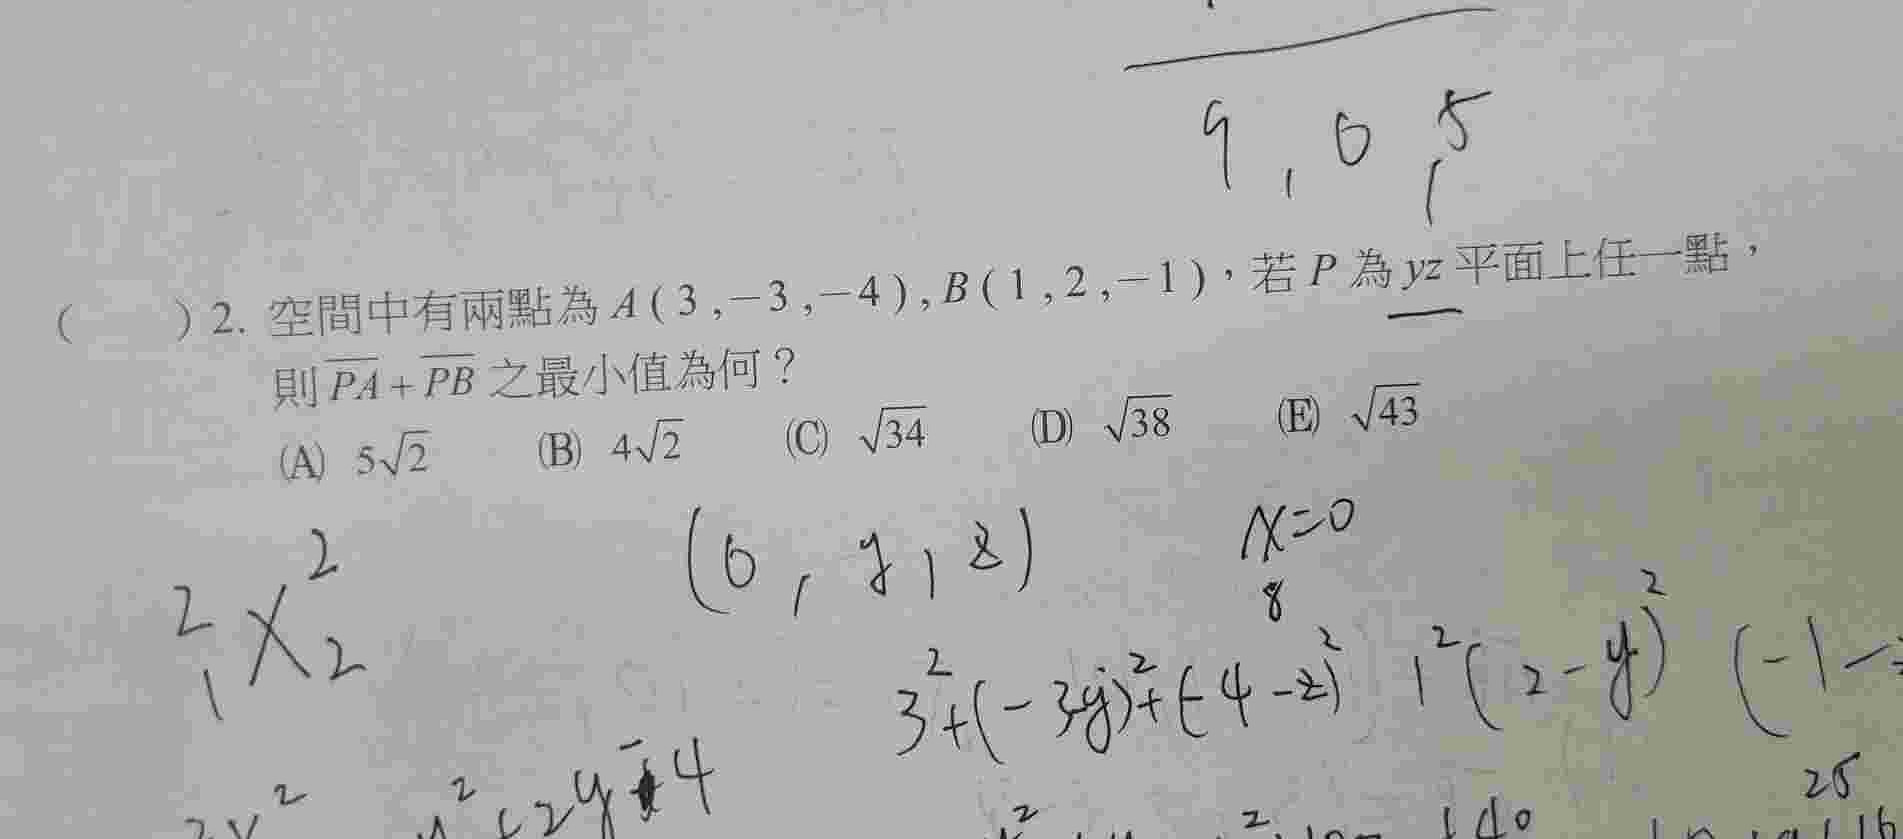 9, 0, 5
( ) 2. 空間中有兩點為 A(3,−3,−4), B(1,2,−1),若 P 為 yz 平面上任一點,
則 PA + PB 之最小值為何?
(A) 5√2 (B) 4√2 (C) √34 (D) √38 (E) √43
(0, y, z) x=0
2 1 X 2 2
8
3²+(−3-y)²+(-4-z)² 1²(2-y)² (-1-
2y-4
25